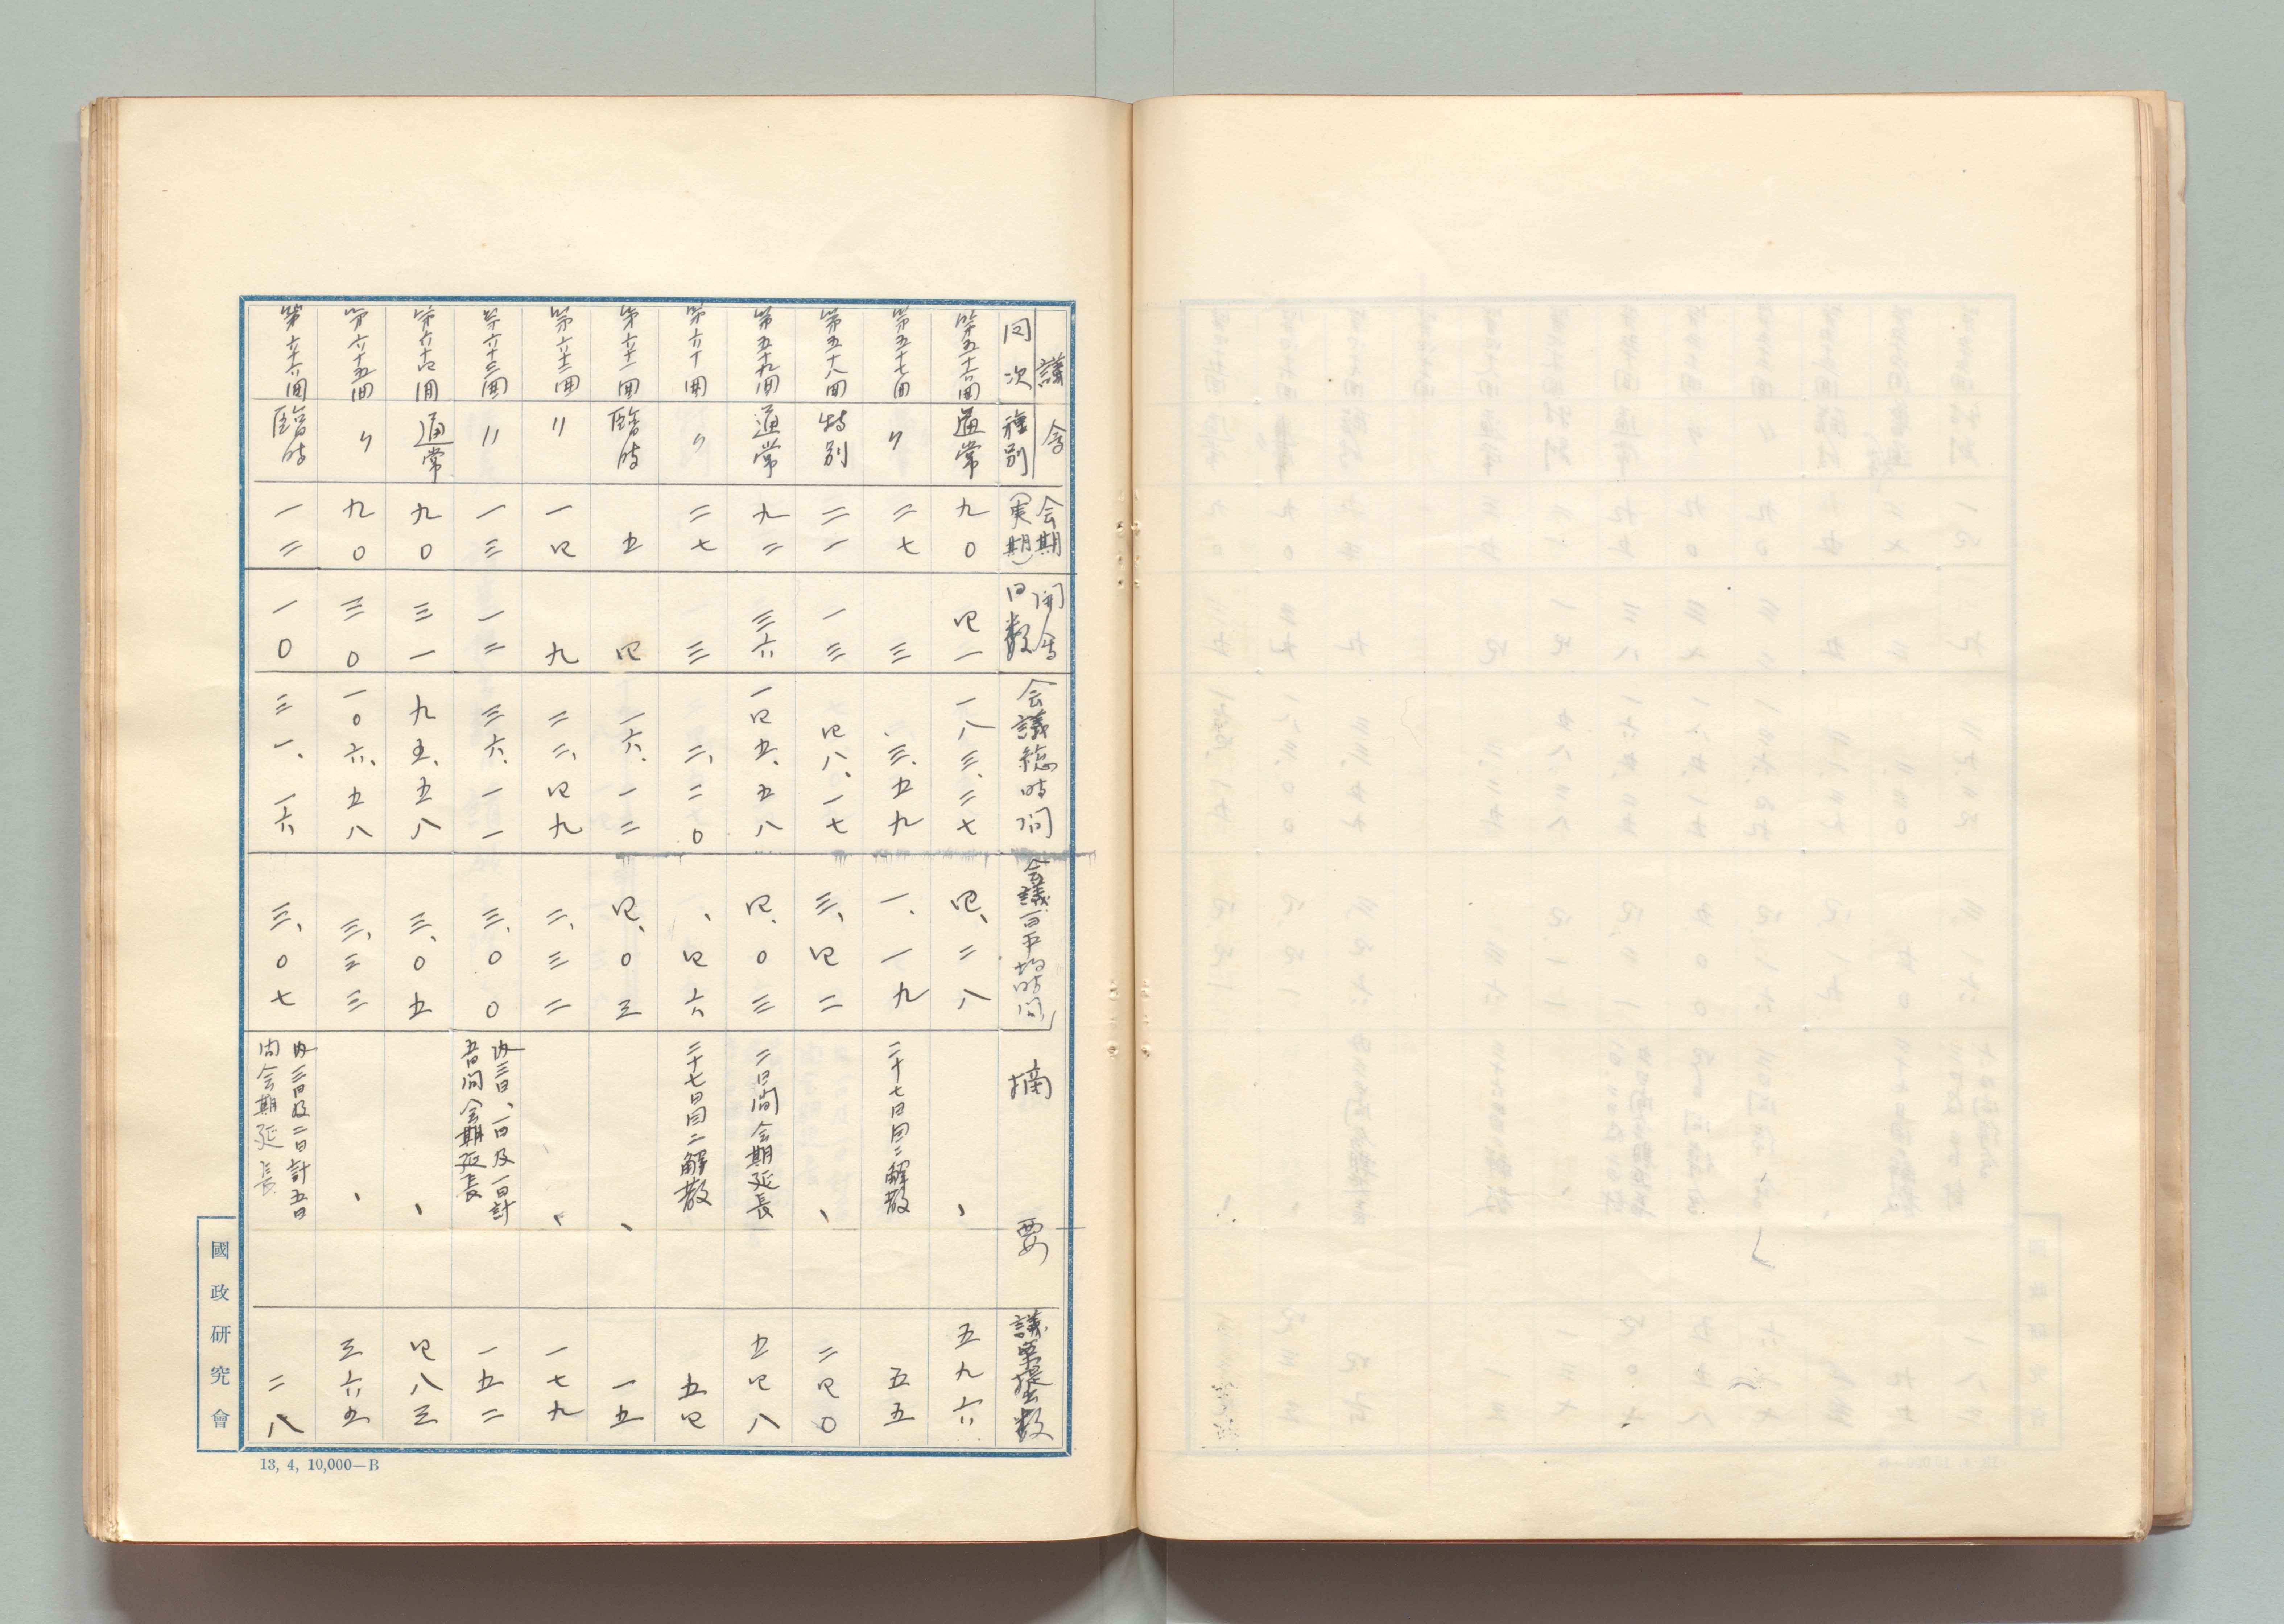 議会
回次 種別 会期(実期) 開会日数 会議総時間 会議一日平均時間 摘要 議案提出数
第五十六回 通常 九〇 四一 一八三、二七 四、二八 、 五九六
第五十七回 〃 二七 三 三、五九 一、一九 二十七日目ニ解散 五五
第五十八回 特別 二一 一三 四八、一七 三、四二 、 二四〇
第五十九回 通常 九二 三六 一四五、五八 四、〇三 二日間会期延長 五四八
第六十回 〃 二七 三 二、二〇 、四六 二十七日目ニ解散 五四
第六十一回 臨時 五 四 一六、一二 四、〇三 、 一五
第六十二回 〃 一四 九 二二、四九 二、三二 、 一七九
第六十三回 〃 一三 一二 三六、一一 三、〇〇 内三日、一日及一日計五日間会期延長 一五二
第六十四回 通常 九〇 三一 九五、五八 三、〇五 、 四八三
第六十五回 〃 九〇 三〇 一〇六、五八 三、三三 、 三六五
第六十六回 臨時 一二 一〇 三一、一六 三、〇七 内三日及二日計五日間会期延長 二八
國政研究會
13, 4, 10,000—B